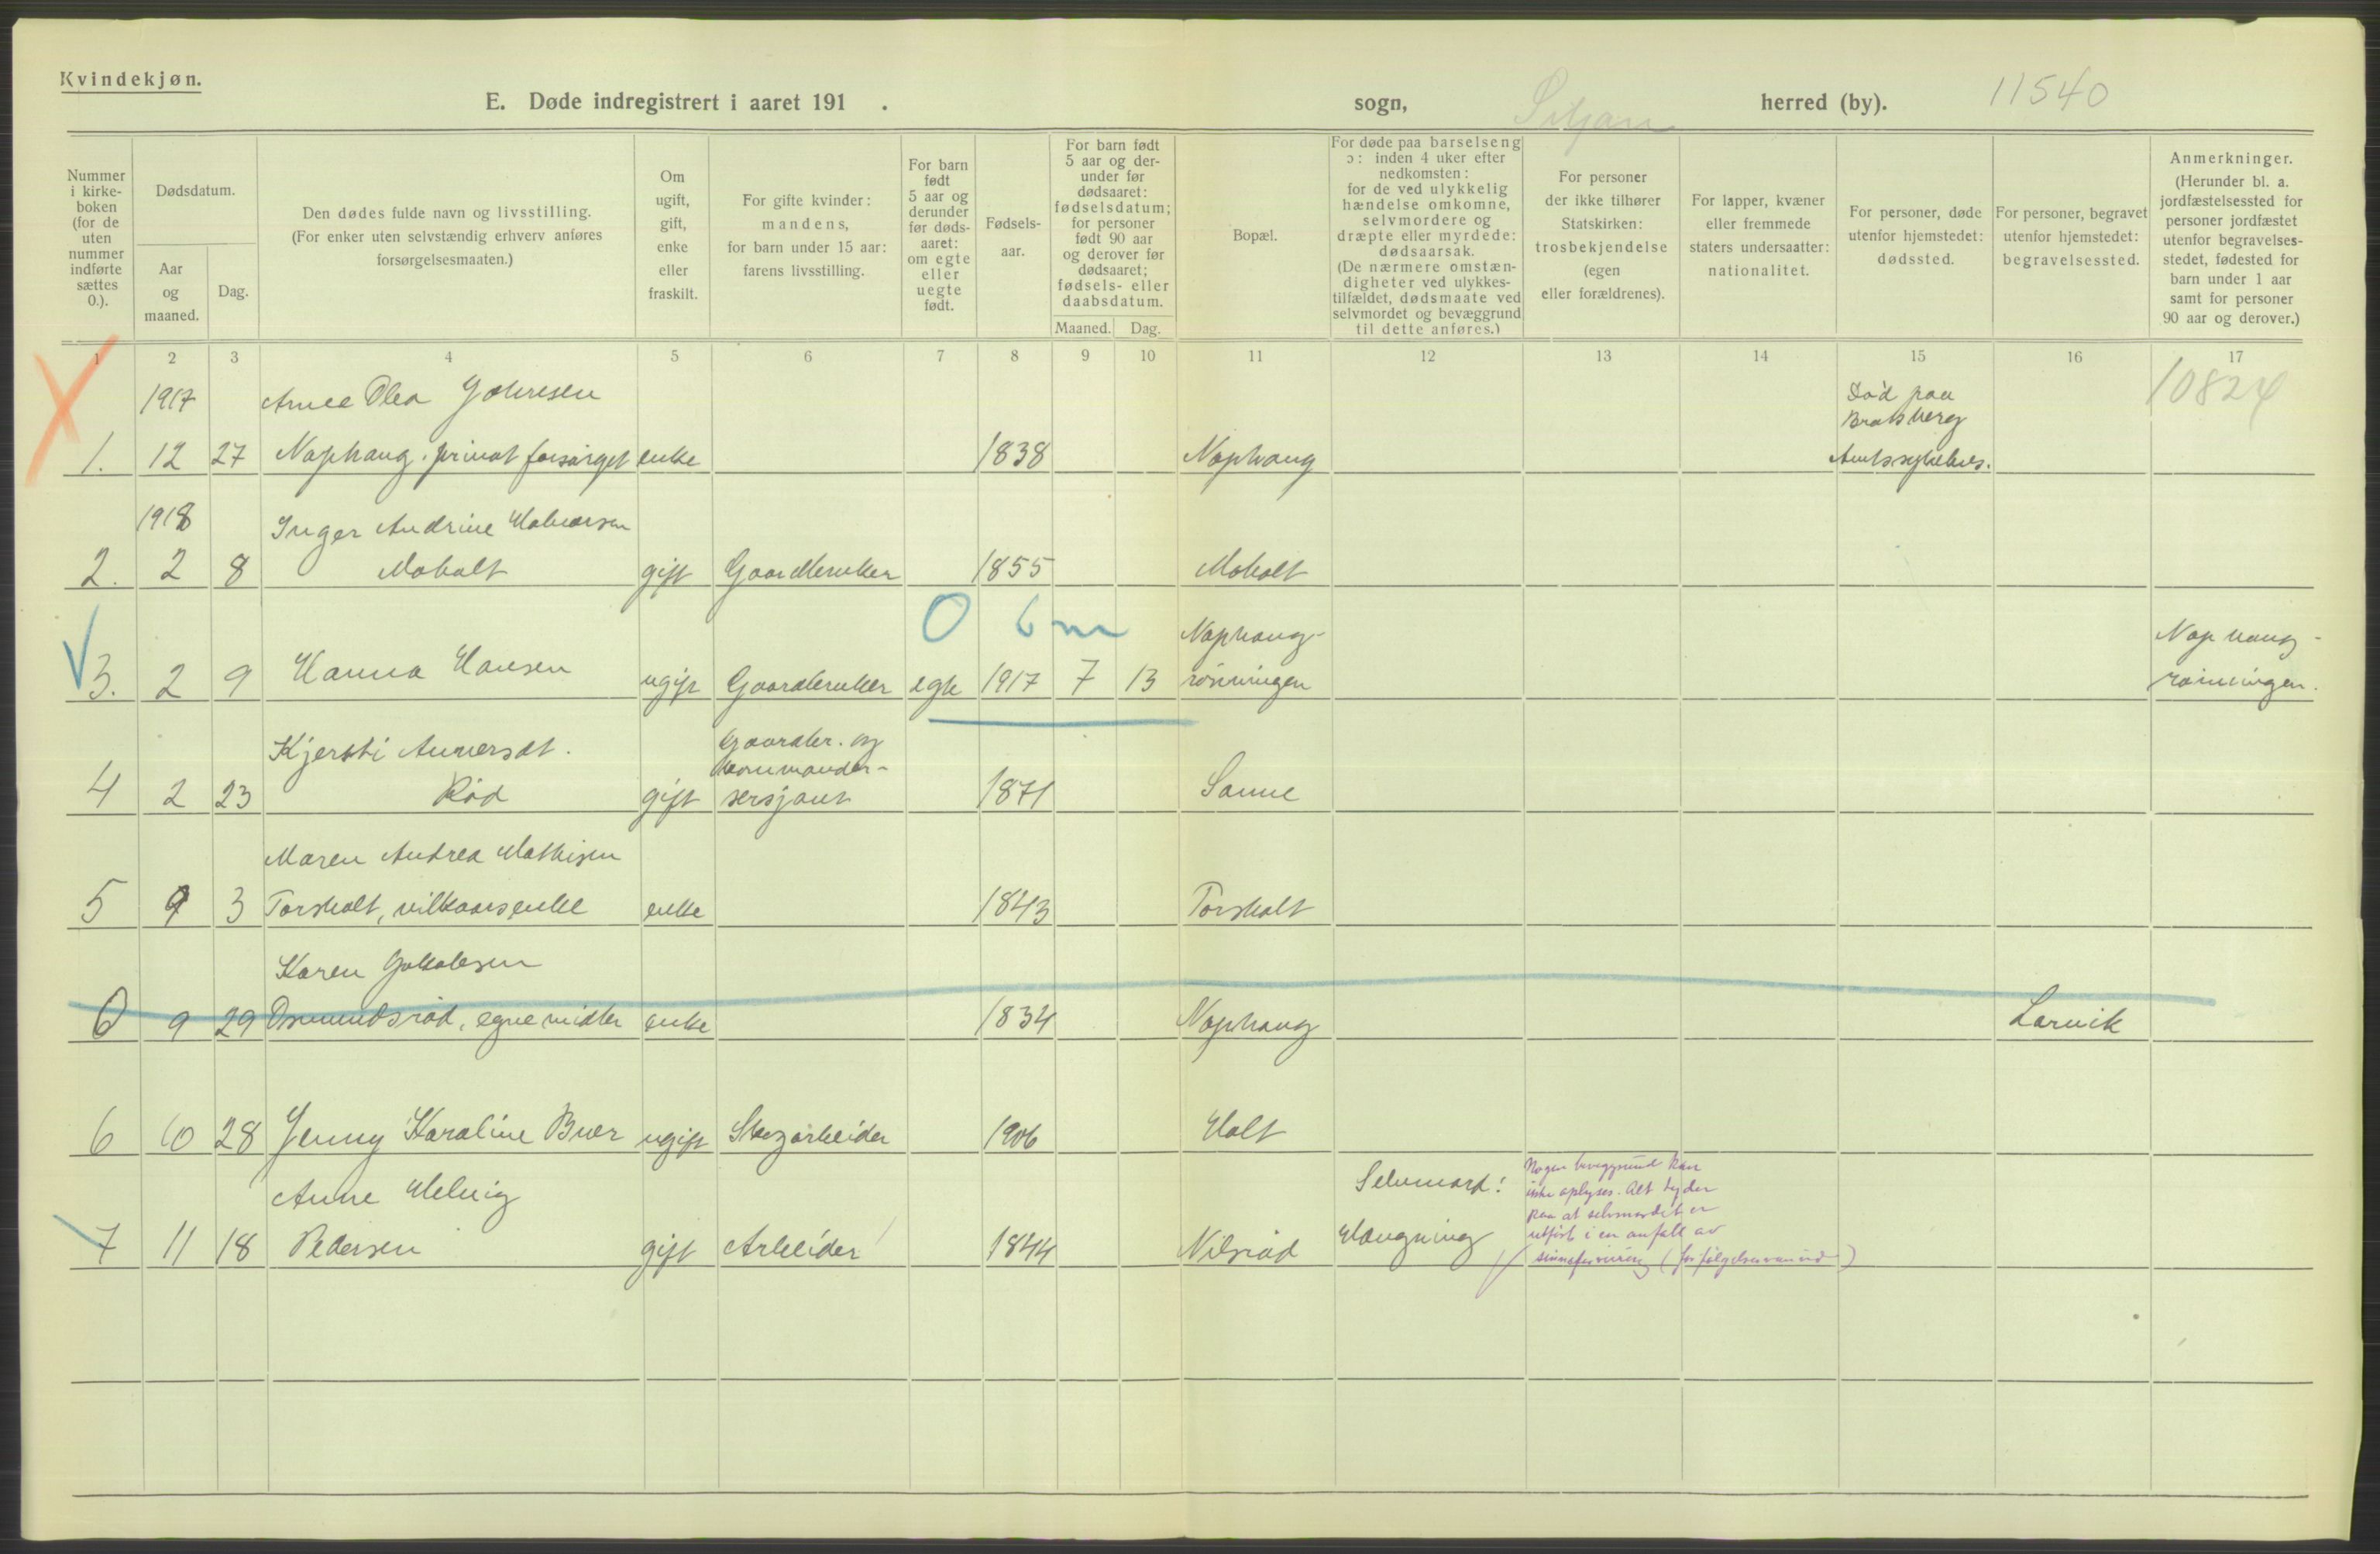 Kvindekjøn.
E. Døde indregistrert i aaret 191 . sogn, Siljan herred (by). 11540
Nummer i kirkeboken (for de uten nummer indførte sættes 0.).
Dødsdatum.
Aar og maaned.
Dag.
Den dødes fulde navn og livsstilling.
(For enker uten selvstændig erhverv anføres
forsørgelsesmaaten.)
Om
ugift,
gift,
enke
eller
fraskilt.
For gifte kvinder:
mandens,
for barn under 15 aar:
farens livsstilling.
For barn
født
5 aar og
derunder
før døds-
aaret:
om egte
eller
uegte
født.
Fødsels-
aar.
For barn født
5 aar og der-
under før
dødsaaret:
fødselsdatum;
for personer
født 90 aar
og derover før
dødsaaret;
fødsels- eller
daabsdatum.
Maaned. Dag.
Bopæl.
For døde paa barselseng
ɔ: inden 4 uker efter
nedkomsten:
for de ved ulykkelig
hændelse omkomne,
selvmordere og
dræpte eller myrdede:
dødsaarsak.
(De nærmere omstæn-
digheter ved ulykkes-
tilfældet, dødsmaate ved
selvmordet og bevæggrund
til dette anføres.)
For personer
der ikke tilhører
Statskirken:
trosbekjendelse
(egen
eller forældrenes).
For lapper, kvæner
eller fremmede
staters undersaatter:
nationalitet.
For personer, døde
utenfor hjemstedet:
dødssted.
For personer, begravet
utenfor hjemstedet:
begravelsessted.
Anmerkninger.
(Herunder bl. a.
jordfæstelsessted for
personer jordfæstet
utenfor begravelses-
stedet, fødested for
barn under 1 aar
samt for personer
90 aar og derover.)
1 2 3 4 5 6 7 8 9 10 11 12 13 14 15 16 17
1917 Anne Olea Johnsen Død paa 10824
Bratsberg
1. 12 27 Naphaug. privat forsørget enke 1838 Naphaug Amtssykehus.
1918 Inger Andrine Halvorsen
2. 2 8 Moholt gift Gaardbruker 1855 Moholt
0 6 m
Naphaug- Naphaug-
3. 2 9 Hanna Hansen ugift Gaardbruker egte 1917 7 13 rønningen rønningen.
Kjersti Anversdt. Gaardbr. og
kommander-
4 2 23 Rød gift sersjant 1871 Sanne
Maren Andrea Mathisen
5 9 3 Torsholt, vilkaarsenke enke 1843 Torsholt
Karen Jakobsen
0 9 29 Osmundsrød, egne midler enke 1834 Naphaug Larvik
6 10 28 Jenny Karaline Buer ugift Skogarbeider 1906 Holt
Anne Helvig Selvmord!
7 11 18 Pedersen gift Arbeider 1844 Nilsrød Hængning
Nogen bevæggrund kan
ikke oplyses. Alt tyder
paa at selvmordet er
utført i en anfall av
sinnsforvirring (forfølgelsesvanvid)